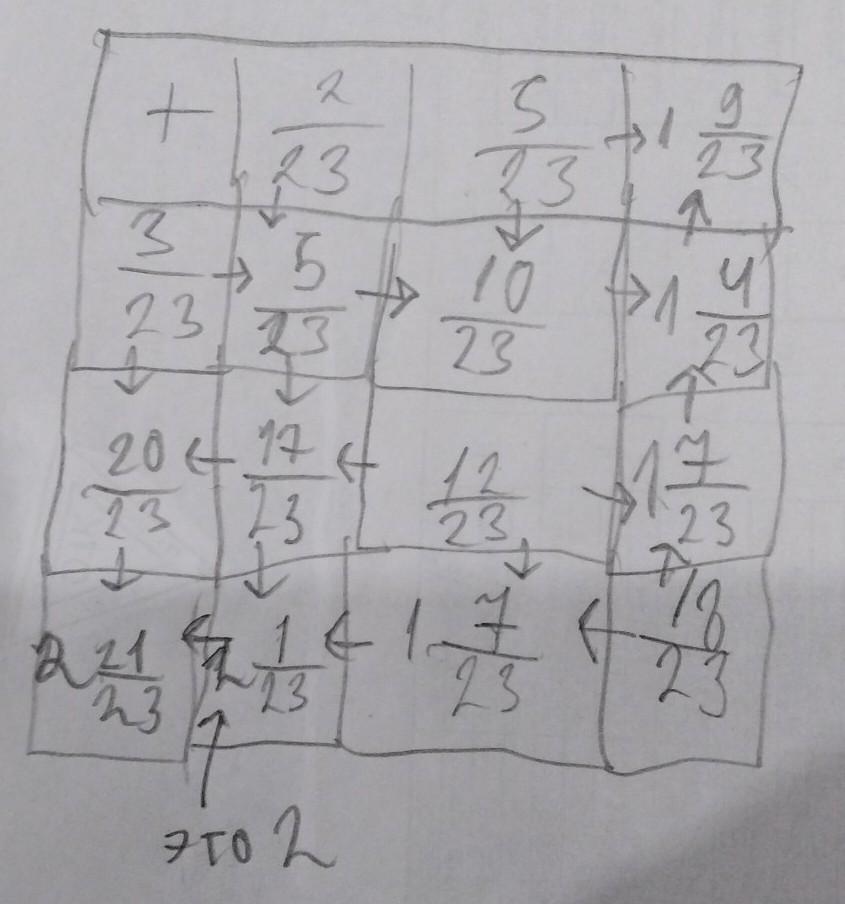 + 2/23 5/23 → 1 9/23
↓ ↓ ↑
3/23 → 5/23 → 10/23 → 1 4/23
↓ ↓ ↑
20/23 ← 17/23 ← 12/23 → 1 7/23
↓ ↓ ↓ ↑
2 21/23 ← 2 1/23 ← 1 7/23 ← 18/23
↑
это 2